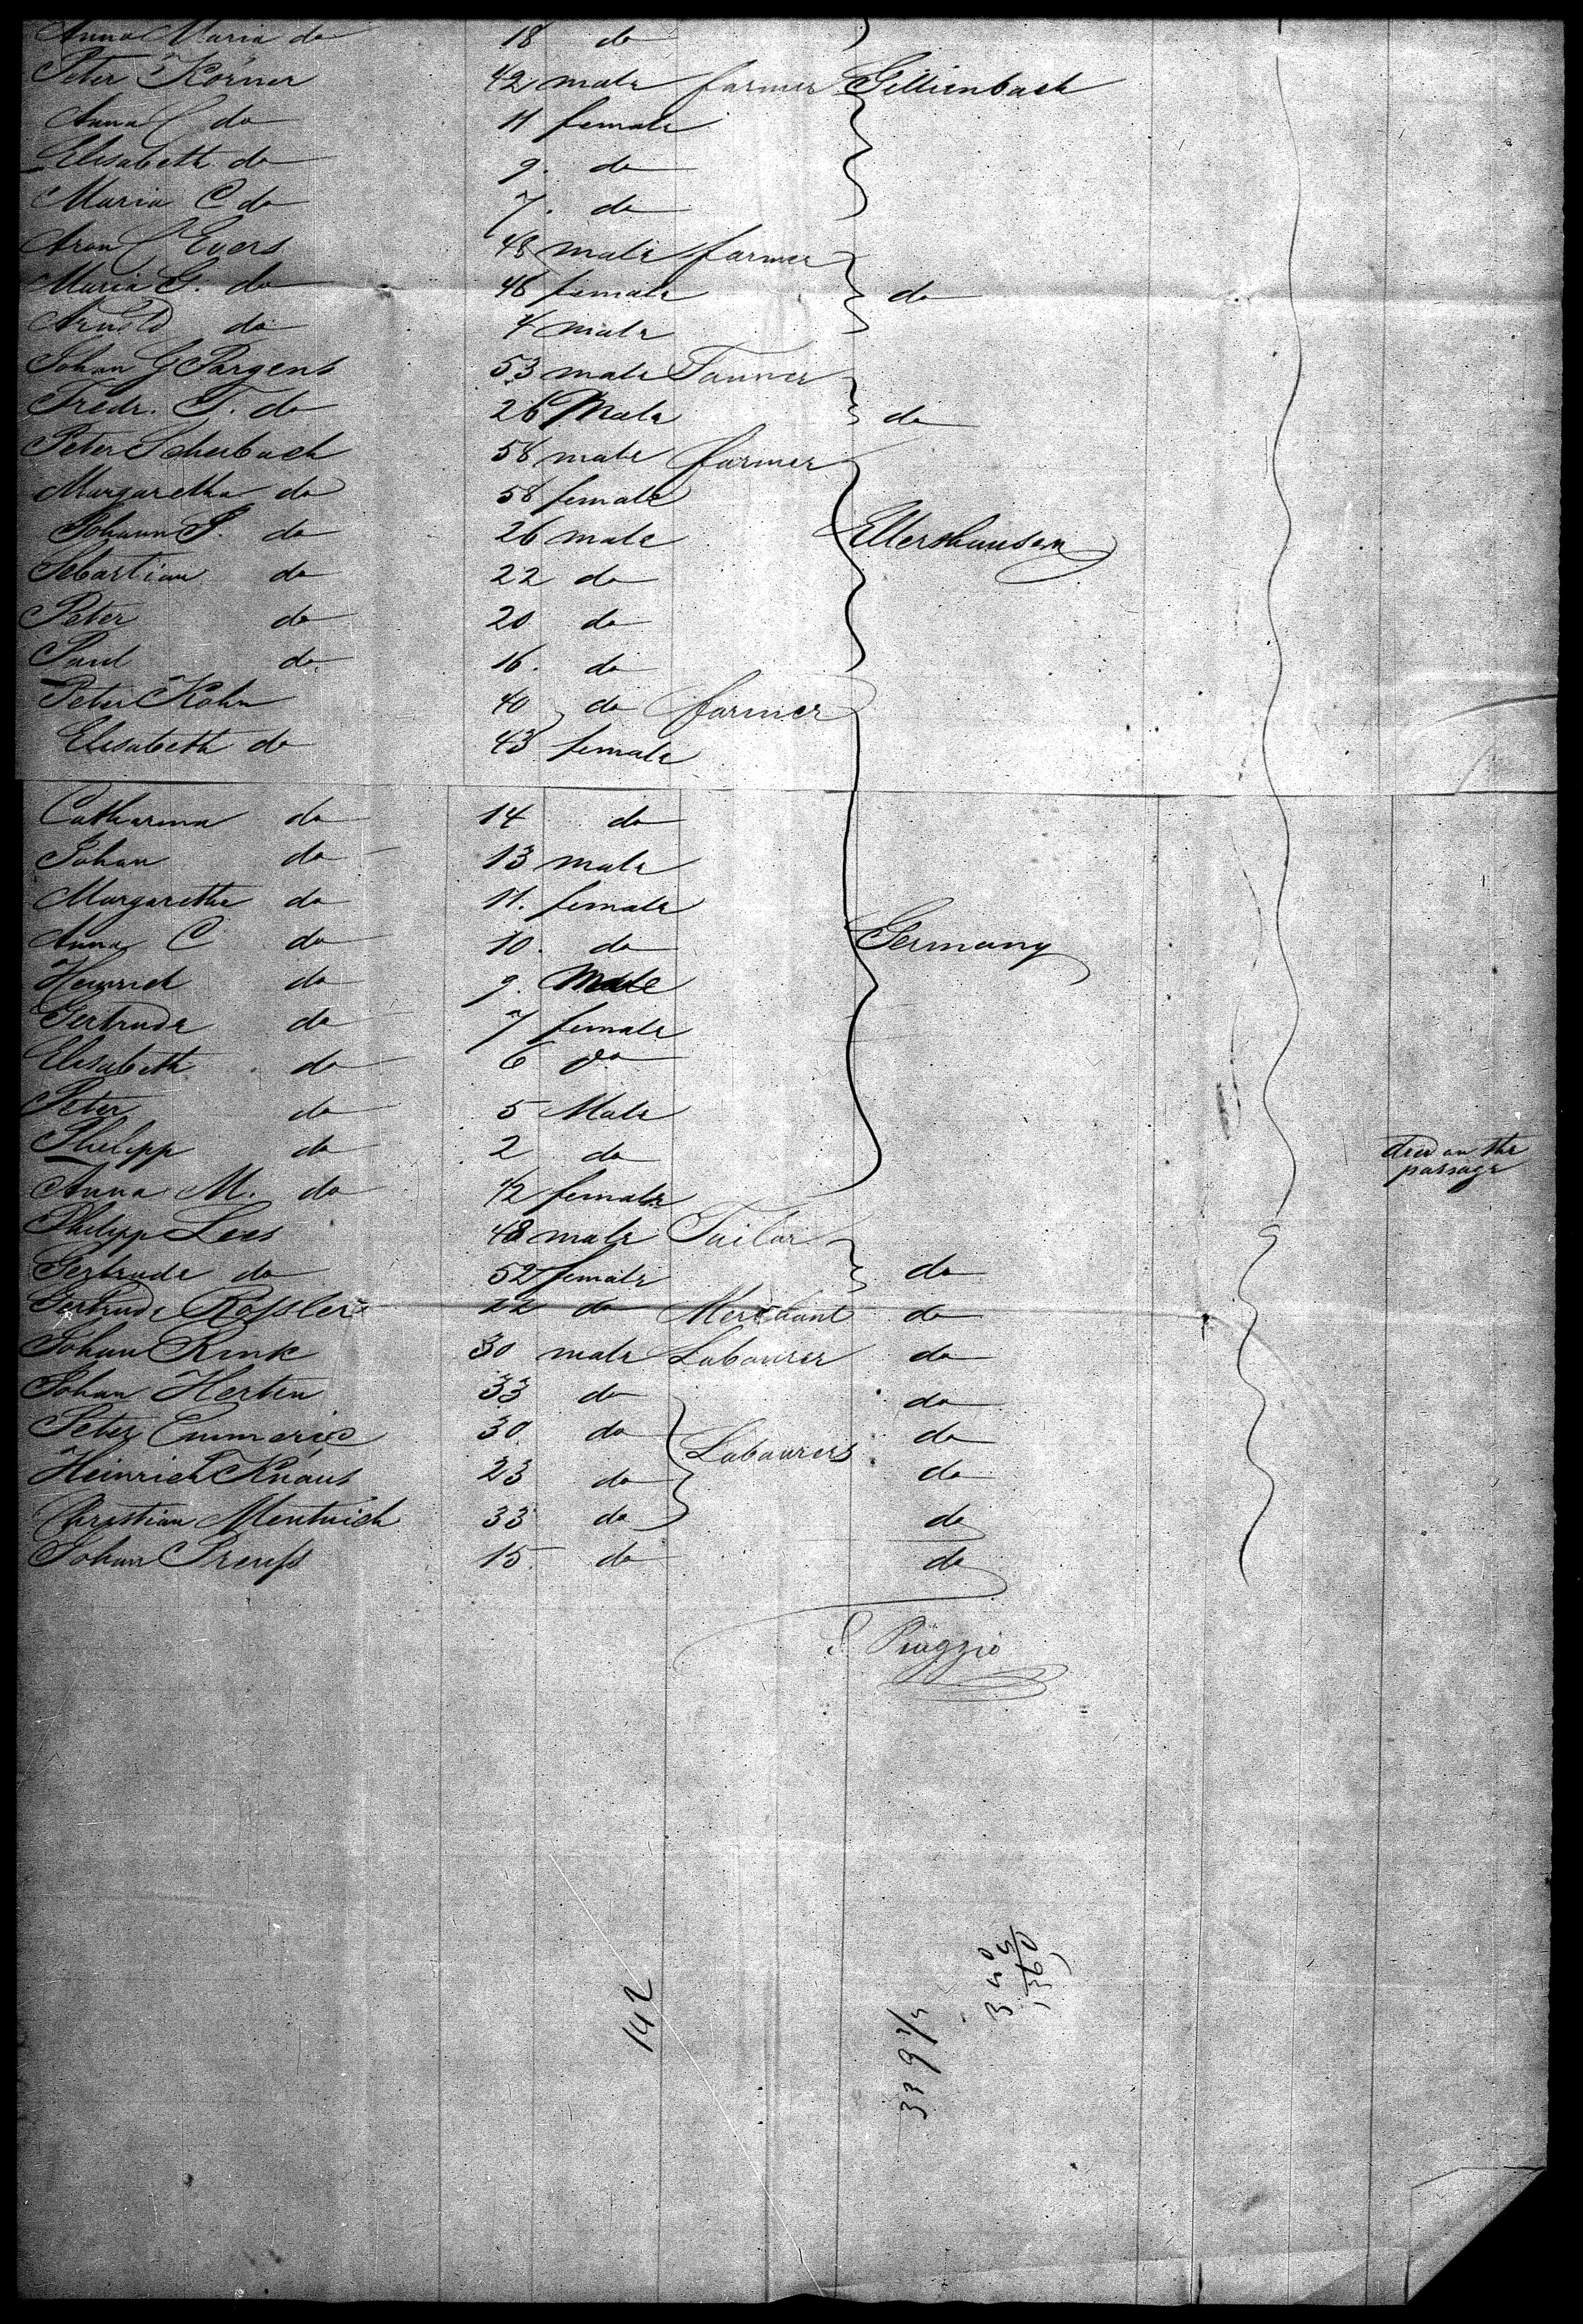 Anna Maria do 18 do
Peter Körner 42 male farmer Gillienbach
Anna C do 11 female
Elisabeth do 9. do
Maria C do 7. do
Aron Evers 48 male farmer
Maria G. do 46 female do
Arnold do 4 male
Johan G Pargens 53 male Tanner
Fredr. T. do 26 Male do
Peter Scherbach 58 male farmer
Margaretha do 58 female
Johann P. do 26 male Ellershausen
Sebastian do 22 do
Peter do 20 do
Paul do 16. do
Peter Kohn 40 do farmer
Elisabeth do 43 female
Catharina do 14 do
Johan do 13 male
Margaretha do 11. female
Anna C do 10. do Germany
Heinrich do 9. Male
Gertrude do 7 female
Elisabeth do 6 do
Peter do 5 Male
Philipp do 2 do died on the
passage
Anna M. do 72 female
Philipp Lees 48 male Tailor
Gertrude do 52 female do
Gertrude Rossler 22 do Merchant do
Johan Rink 30 male Labourer do
Johan Herten 33 do do
Peter Emmeric 30 do Labourers do
Heinrich Knaus 23 do do
Christian Mentnich 33 do do
Johan Preuss 15. do do
Piaggio
142
340
1360